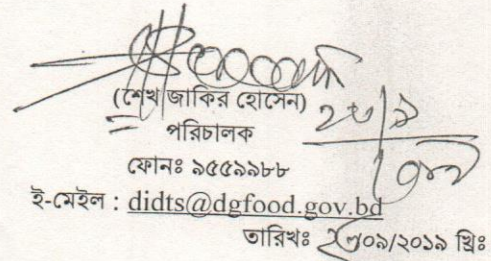 (শেখ জাকির হোসেন)
পরিচালক
ফোনঃ ৯৫৫৯৯৮৮
ই-মেইল : didts@dgfood.gov.bd
তারিখঃ /০৯/২০১৯ খ্রিঃ